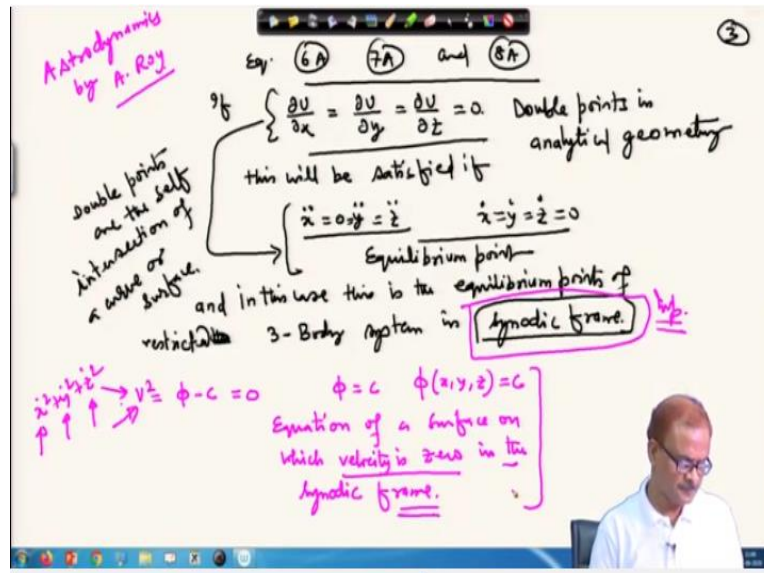 3
Astrodynamics
by A. Roy
Eq. 6A 7A and 8A
If { ∂U/∂x = ∂U/∂y = ∂U/∂z = 0. Double points in
analytical geometry
this will be satisfied if
ẍ = 0 = ÿ = z̈ ẋ = ẏ = ż = 0
Equilibrium point
Double points
are the self
intersection of
a curve or
surface.
and in this case this is the equilibrium points of
restricted 3-Body system in synodic frame. Imp.
ẋ² + ẏ² + ż² → V² = ϕ - c = 0
ϕ = c ϕ(x, y, z) = c
Equation of a surface on
which velocity is zero in the
synodic frame.